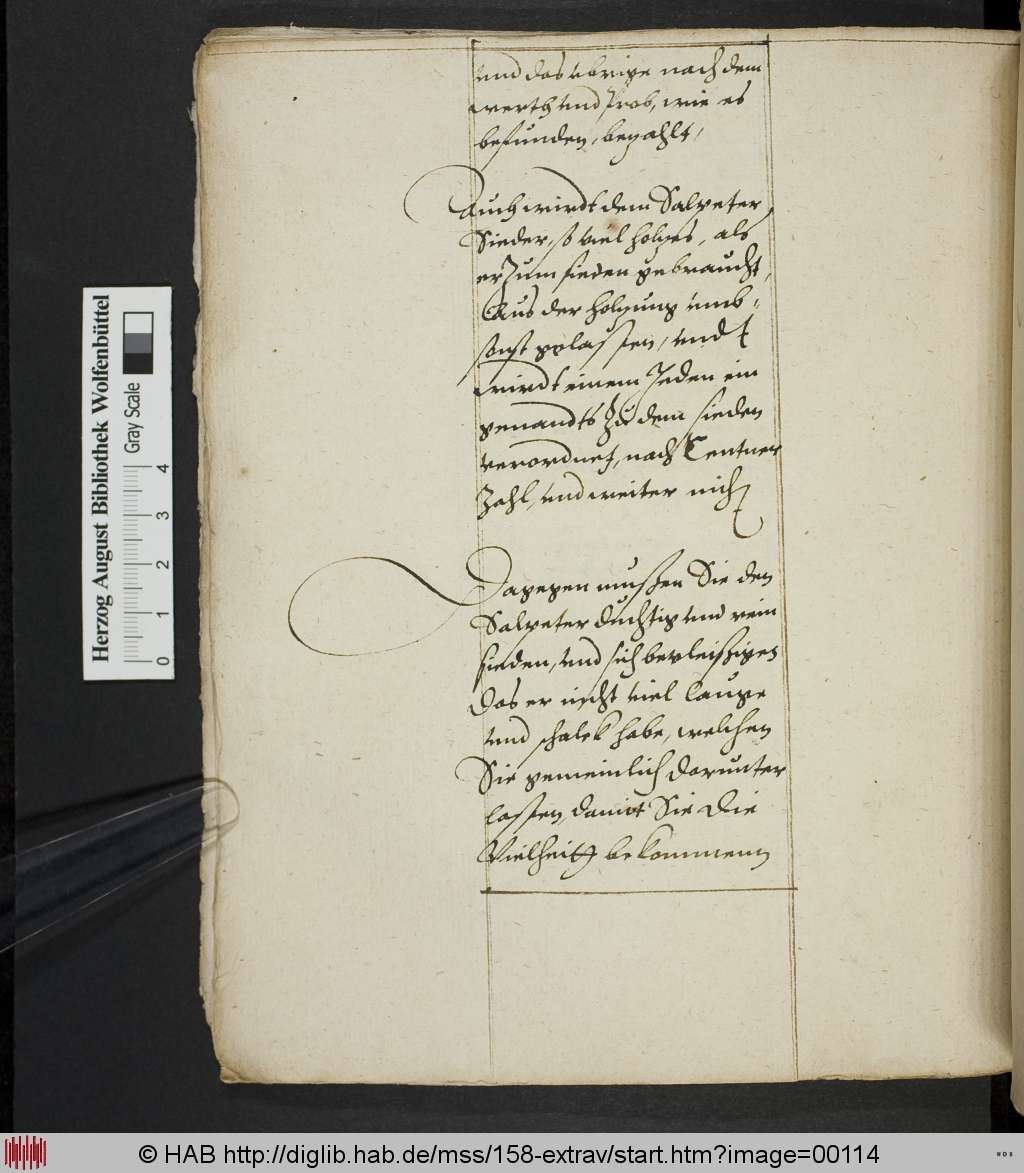 vnd das vbrige nach dem
werth vnd Prob, wie es
befunden, bezahlt,
Auch wirdt dem Salpeter
Sieder, so viel holzes, als
er Zum sieden gebraucht,
Aus der holzung vmb-
sonst gelassen, vndt
wirdt einem Jeden ein
genandts Zu dem sieden
verordnet, nach Centner
Zahl, vnd weiter nicht
Dagegen mussen Sie den
Salpeter duchtig vnd rein
sieden, vnd sich bevleissigen
das er nicht viel lauge
vnd schalck habe, welchen
Sie gemeinlich darunter
lassen, damit Sie die
Vielheit bekommenn
Herzog August Bibliothek Wolfenbüttel
Gray Scale
0 1 2 3 4
© HAB http://diglib.hab.de/mss/158-extrav/start.htm?image=00114